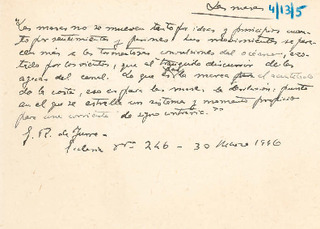 Las masas 4/13/5
"Las masas no se mueven tanto por ideas y principios cuanto
por sentimientos y pasiones. Sus movimientos se parecen
más a las tormentosas convulsiones del océano, azotado
por los vientos, que al tranquilo discurrir de las
aguas del canal. Lo que es la marea para el acantilado
de la costa, eso es para las masas la : punto
en el que se estrella un sistema y momento propicio
para una corriente de signo contrario."
J. R. de
nº 246 - 30 Marzo 1946